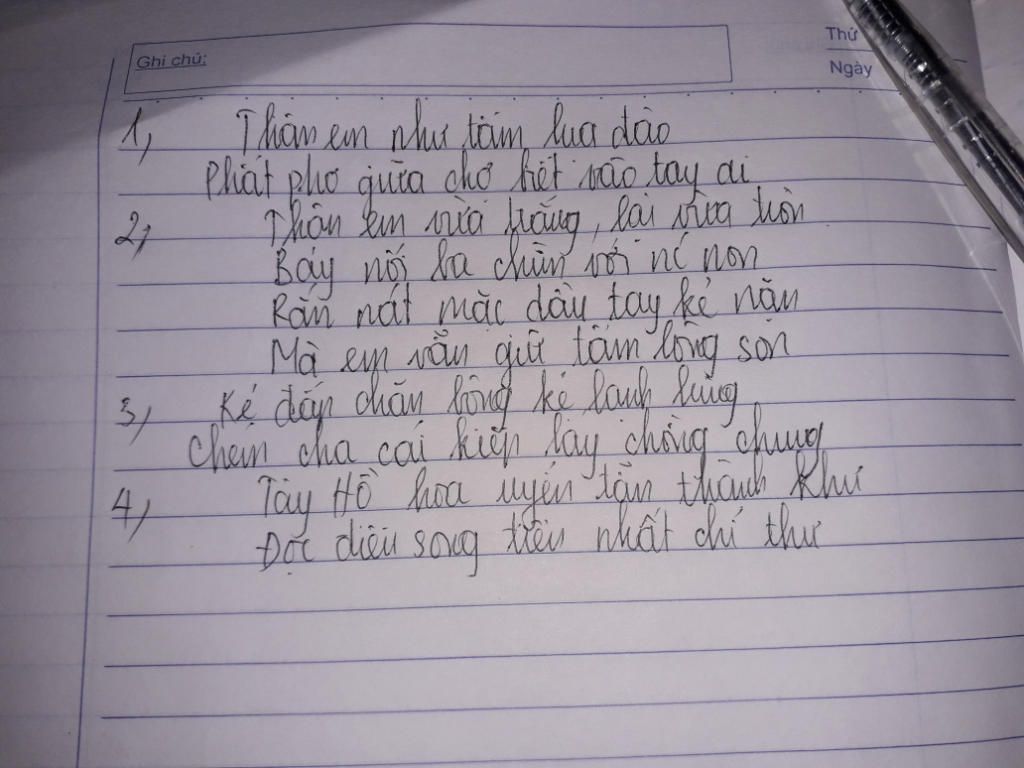 Ghi chú:
Thứ
Ngày
1, Thân em như tấm lụa đào
Phất phơ giữa chợ biết vào tay ai
2, Thân em vừa trắng, lại vừa tròn
Bảy nổi ba chìm với nước non
Rắn nát mặc dầu tay kẻ nặn
Mà em vẫn giữ tấm lòng son
3, Kẻ đắp chăn bông kẻ lạnh lùng
Chém cha cái kiếp lấy chồng chung
4, Tây Hồ hoa uyển tẫn thành khư
Độc điếu song tiền nhất chỉ thư